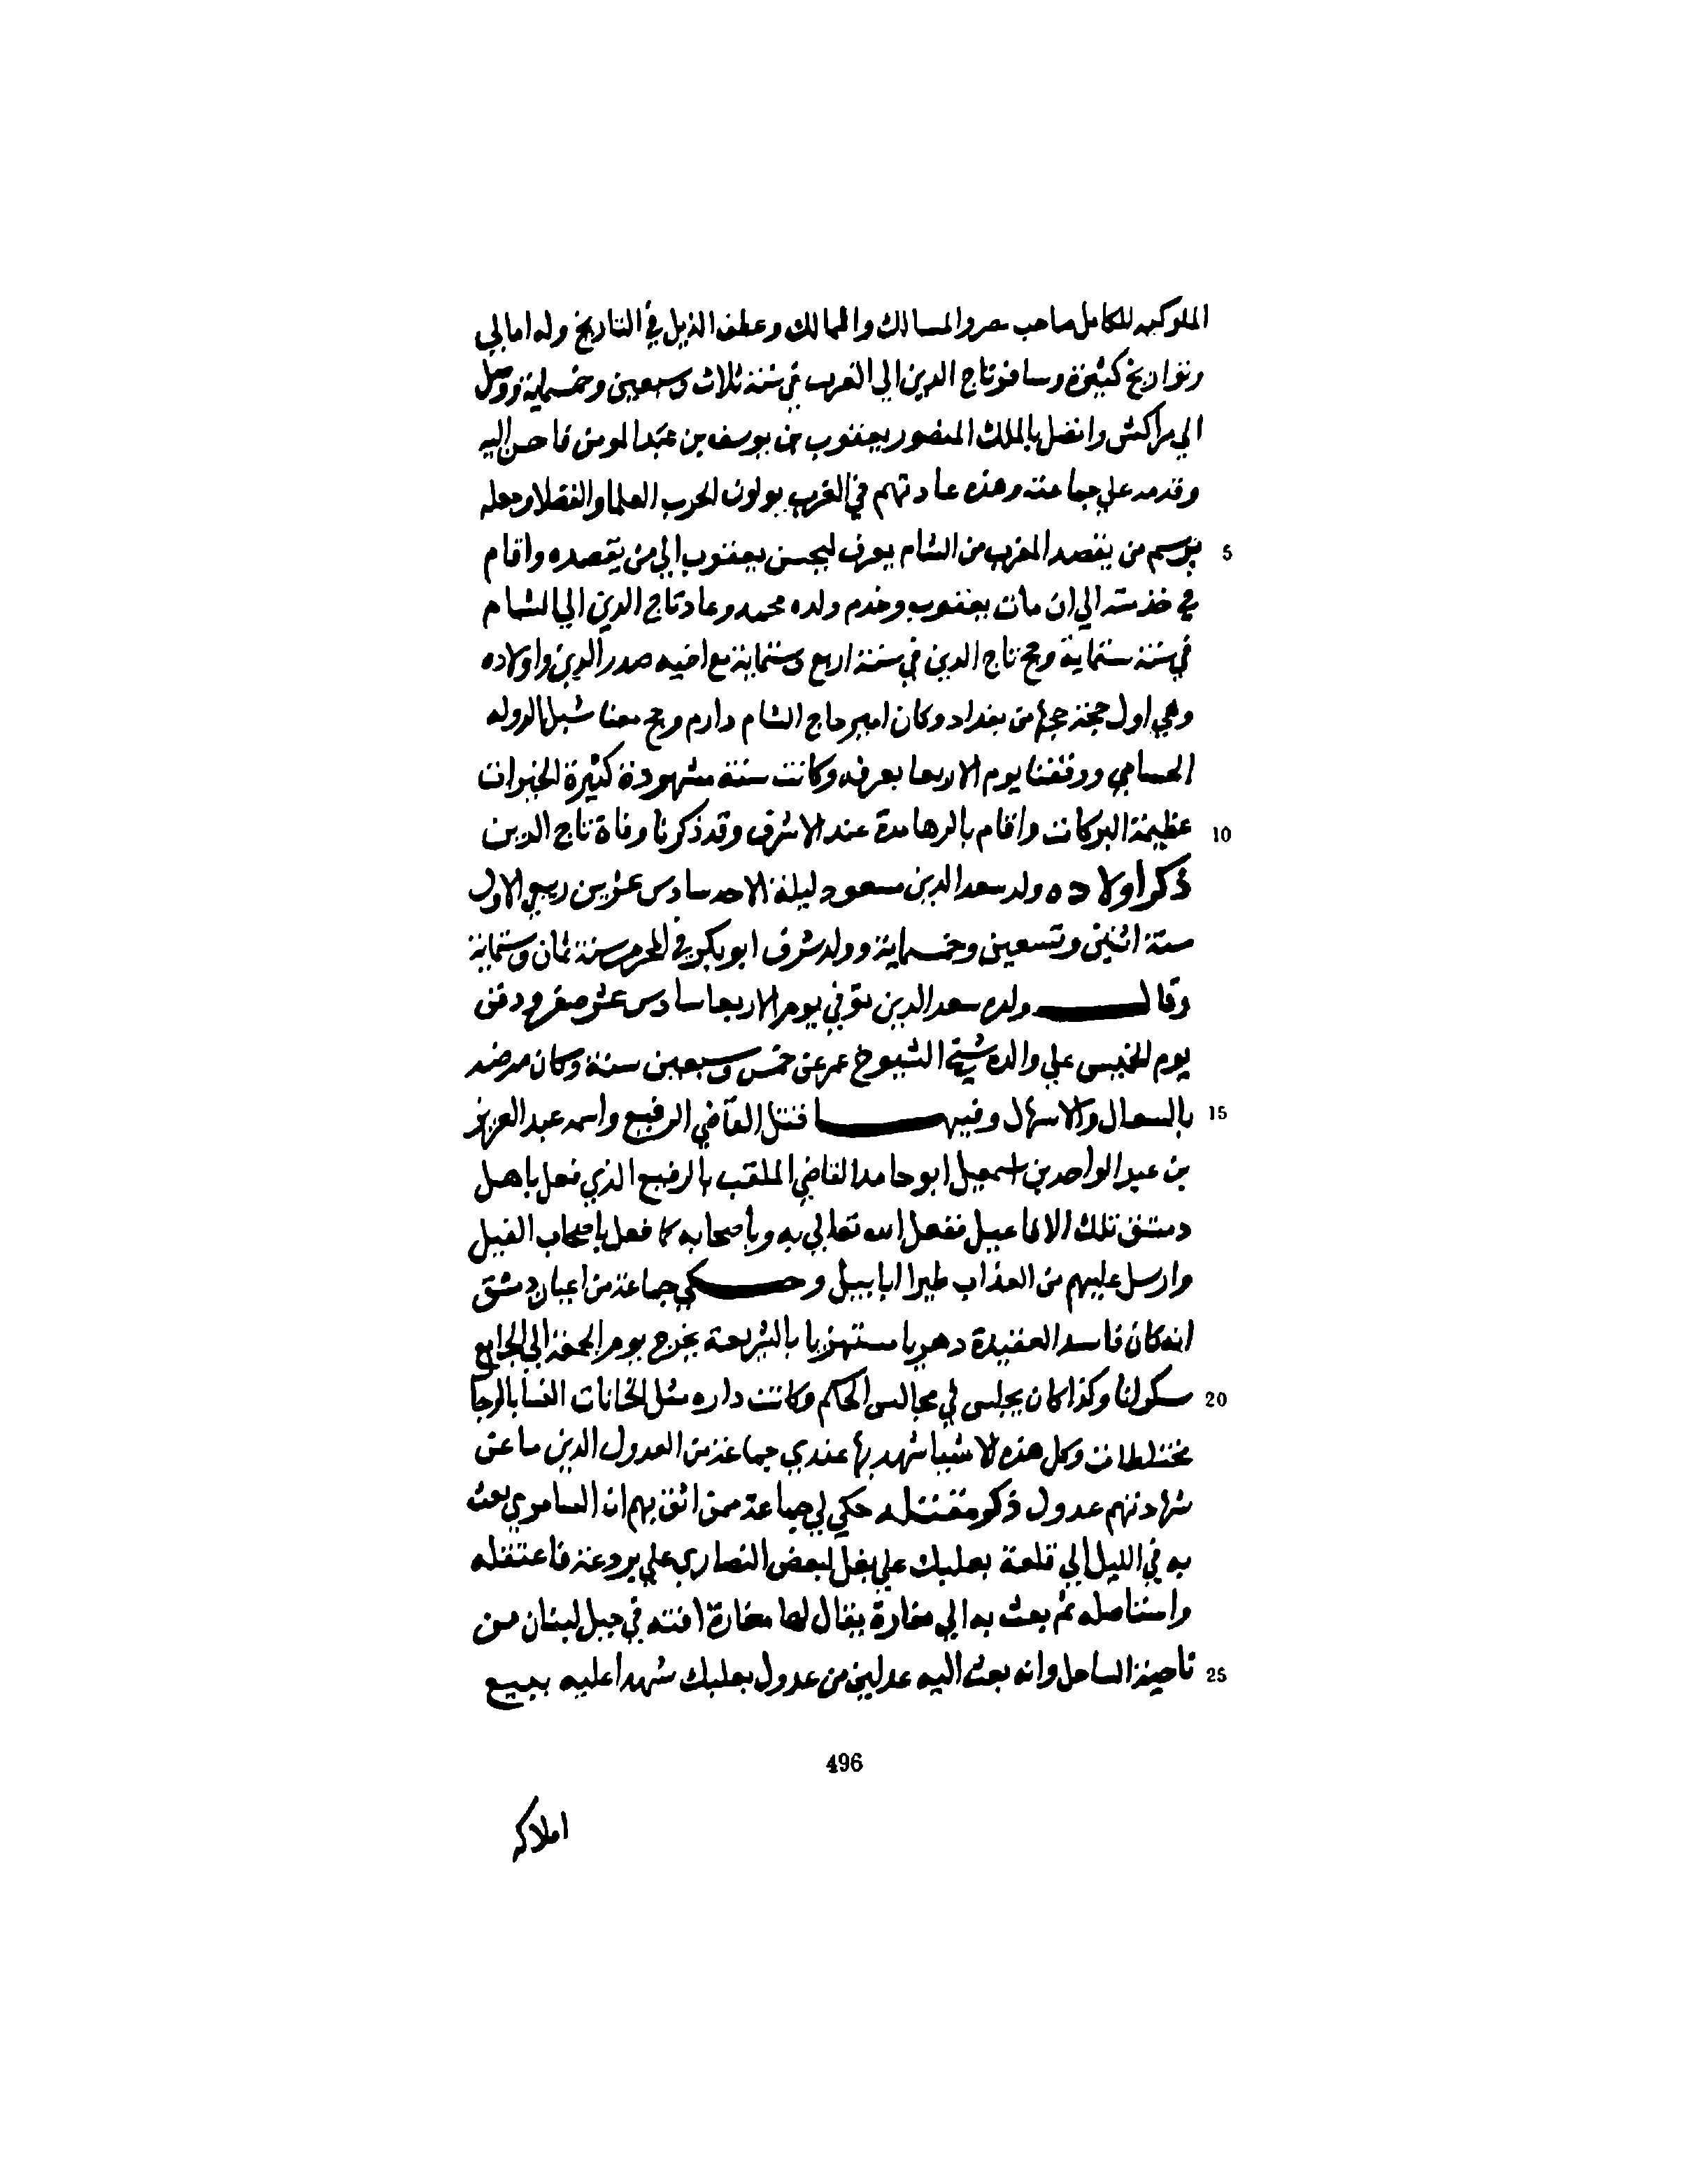 الملوكيه للكامل صاحب مصر والمسالك والممالك وعطف الذيل في التاريخ وله امالي
وتواريخ كثيرة وسافر تاج الدين الى الغرب في سنة ثلاث وسبعين وخمسماية ووصل
الي مراكش واتصل بالملك المنصور يعقوب بن يوسف بن عبد المومن فاحسن اليه
وقدمه علي جماعته وهذه عادتهم في الغرب يولون الحرب العلما والفضلا وجعله
برسم من يقصد المغرب من الشام يعرف ليحسن يعقوب الي من يقصده واقام
في خذمته الي ان مات يعقوب وخدم ولده محمد وعاد تاج الدين الي الشام
في سنة ستماية وحج تاج الدين في سنة اربع وستماية مع اخيه صدر الدين واولاده
وهي اول حجة حججها من بغداد وكان امير حاج الشام دارم وحج معنا شبل الدوله
الحسامي ووقفنا يوم الاربعا بعرفه وكانت سنة مشهودة كثيرة الخيرات
10 عظيمة البركات واقام بالرها مدة عند الاشرف وقد ذكرنا وفاة تاج الدين
ذكر اولاده ولد سعد الدين مسعود ليلة الاحد سادس عشرين ربيع الاول
سنة اثنين وتسعين وخمسماية وولد شرف ابو بكر في المحرم سنة ثمان وستماية
وقال ولده سعد الدين توفي يوم الاربعا سادس عشر صفر ودفن
يوم الخميس علي والده شيخ الشيوخ عمر عن خمس وسبعين سنة وكان مرضه
15 بالسعال والاسهال وفيها قتل القاضي الرفيع واسمه عبد العزيز
بن عبد الواحد بن اسمعيل ابو حامد القاضي الملقب بالرفيع الذي فعل باهل
دمشق تلك الافاعيل ففعل الله تعالي به وباصحابه كما فعل باصحاب الفيل
وارسل عليهم من العذاب طيرا ابابيل وحكي جماعة من اعيان دمشق
انه كان فاسد العقيدة دهريا مستهزيا بالشريعة يخرج يوم الجمعة الي الجامع
20 سكرانا وكذا كان يجلس في مجالس الحكم وكانت داره مثل الخانات النسا بالرجا
مختلطات وكل هذه الاشيا شهد بها عندي جماعة من العدول الذين ما عن
شهادتهم عدول ذكر مقتله حكي لي جماعة ممن اثق بهم ان السامري بعث
به في الليل الي قلعة بعلبك علي بغل لبعض النصارى علي بردعة فاعتقله
واستاصله ثم بعث به الي مغارة يقال لها مغارة افته في جبل لبنان من
25 ناحية الساحل وانه بعث اليه عدلين من عدول بعلبك شهدا عليه ببيع
496
املاكه